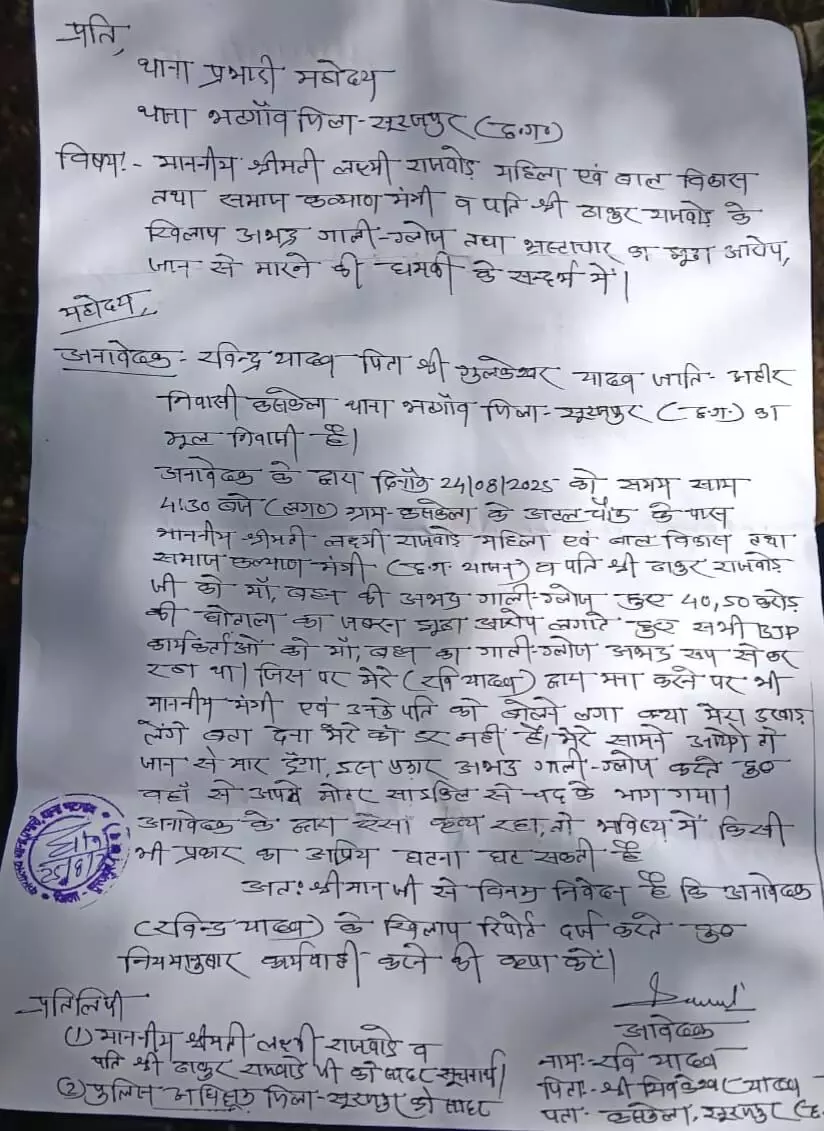 प्रति,
थाना प्रभारी महोदय
थाना भटगाँव जिला-सूरजपुर (छ.ग.)
विषय:- माननीय श्रीमती लक्ष्मी राजवाड़े महिला एवं बाल विकास
तथा समाज कल्याण मंत्री व पति श्री ठाकुर राजवाड़े के
खिलाप अभद्र गाली-ग्लोज तथा भ्रस्टाचार का झूठा आरोप,
जान से मारने की धमकी के सन्दर्भ में।
महोदय,
अनावेदक:- रविन्द्र यादव पिता श्री यादव जाति- अहीर
निवासी कसकेला थाना भटगाँव जिला- सूरजपुर (छ.ग.) का
मूल निवासी है।
अनावेदक के द्वारा दिनाँक 24/08/2025 को समय साम
4:30 बजे (लग०) ग्राम-कसकेला के अटल चौक के पास
माननीय श्रीमती लक्ष्मी राजवाड़े महिला एवं बाल विकास तथा
समाज कल्याण मंत्री (छ.ग. शासन) व पति श्री ठाकुर राजवाड़े
जी को माँ, बहन की अभद्र गाली-ग्लोज हुए 40,50 करोड़
की घोटाला का झूठा आरोप लगाते हुए सभी BJP
कार्यकर्ताओं को माँ, बहन का गाली-ग्लोज अभद्र रूप से कर
रहा था। जिस पर मेरे (रवि यादव) द्वारा मना करने पर भी
माननीय मंत्री एवं उनके पति को बोलने लगा क्या मेरा उखाड़
लेंगे बता देना मेरे को डर नहीं है, मेरे सामने आयेंगे तो
जान से मार दूँगा, इस प्रकार अभद्र गाली-ग्लोज करते हुए
वहाँ से अपने मोटर साइकिल से चढ़ के भाग गया।
अनावेदक के द्वारा ऐसा कृत्य रहा, तो भविष्य में किसी
भी प्रकार का अप्रिय घटना घट सकती है
अतः श्रीमान जी से विनम्र निवेदन है कि अनावेदक
(रविन्द्र यादव) के खिलाप रिपोर्ट दर्ज करते हुए
नियमानुसार कार्यवाही करने की कृपा करें।
प्रतिलिपी
(1) माननीय श्रीमती लक्ष्मी राजवाड़े व
पति श्री ठाकुर राजवाड़े जी को सादर सूचनार्थ।
(2) पुलिस अधिक्षक जिला-सूरजपुर को सादर
आवेदक
नाम:- रवि यादव
पिता:- श्री यादव
पता:- कसकेला, सूरजपुर (छ.